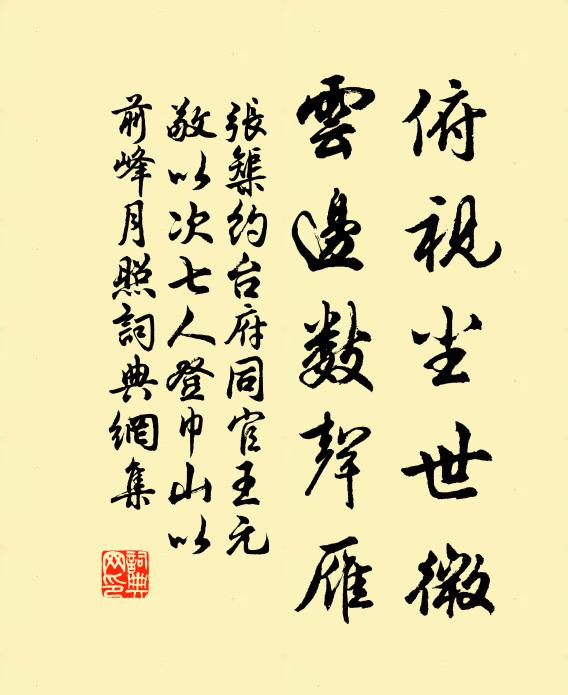 俯視尘世微
雲邊數聲雁
張築約台府同官王元
敬以次七人登巾山以
前峰月照詞典網集
詞典
网印